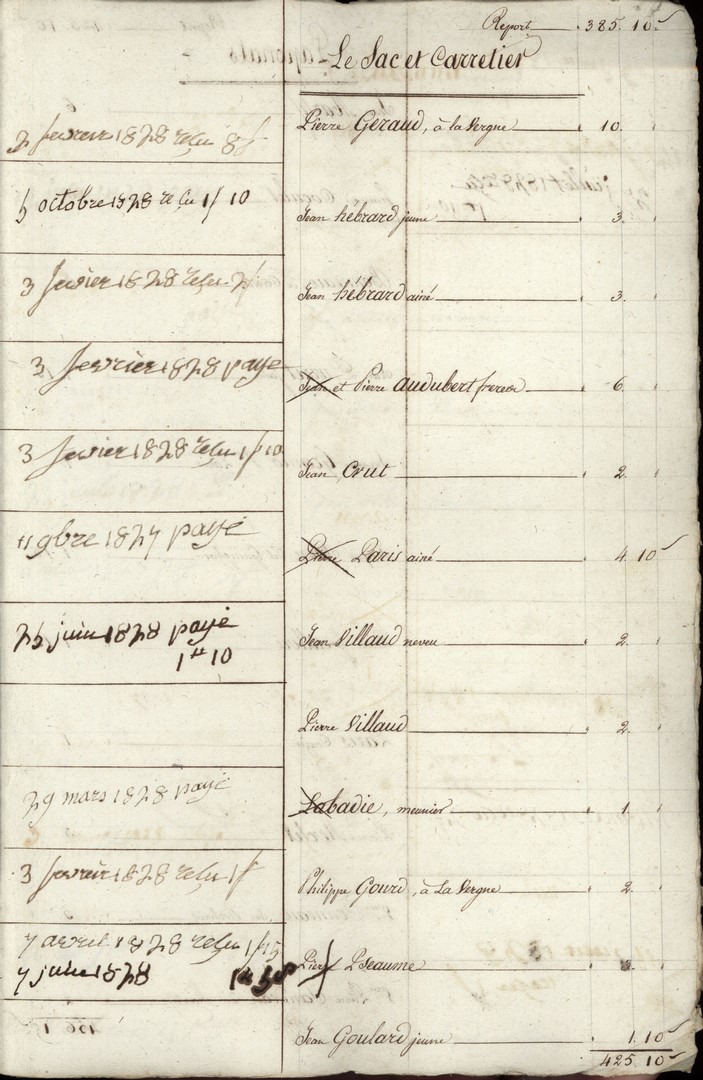 Report 385. 10
Le Sac et Carretier
3 fevrier 1828 reçu 8f
Pierre Geraud, à la Vergne 10.
5 octobre 1828 reçu 1f 10
Jean hébrard jeune 3.
3 fevrier 1828 reçu 2f
Jean hébrard ainé 3.
3 fevrier 1828 payé
Jean et Pierre audubert freres 6.
3 fevrier 1828 reçu 1f 10
Jean Crut 2.
11 9bre 1827 payé
Pierre Paris ainé 4 10
25 juin 1828 payé
1# 10
Jean Villaud neveu 2.
Pierre Villaud 2.
29 mars 1828 payé
Labadie, meunier 1.
3 fevrier 1828 reçu 1f
Philippe Gourd, à La Vergne 2.
7 avril 1828 reçu 1f 15
7 juin 1828
Pierre Pseaume
Jean Goulard jeune 1. 10
425 10